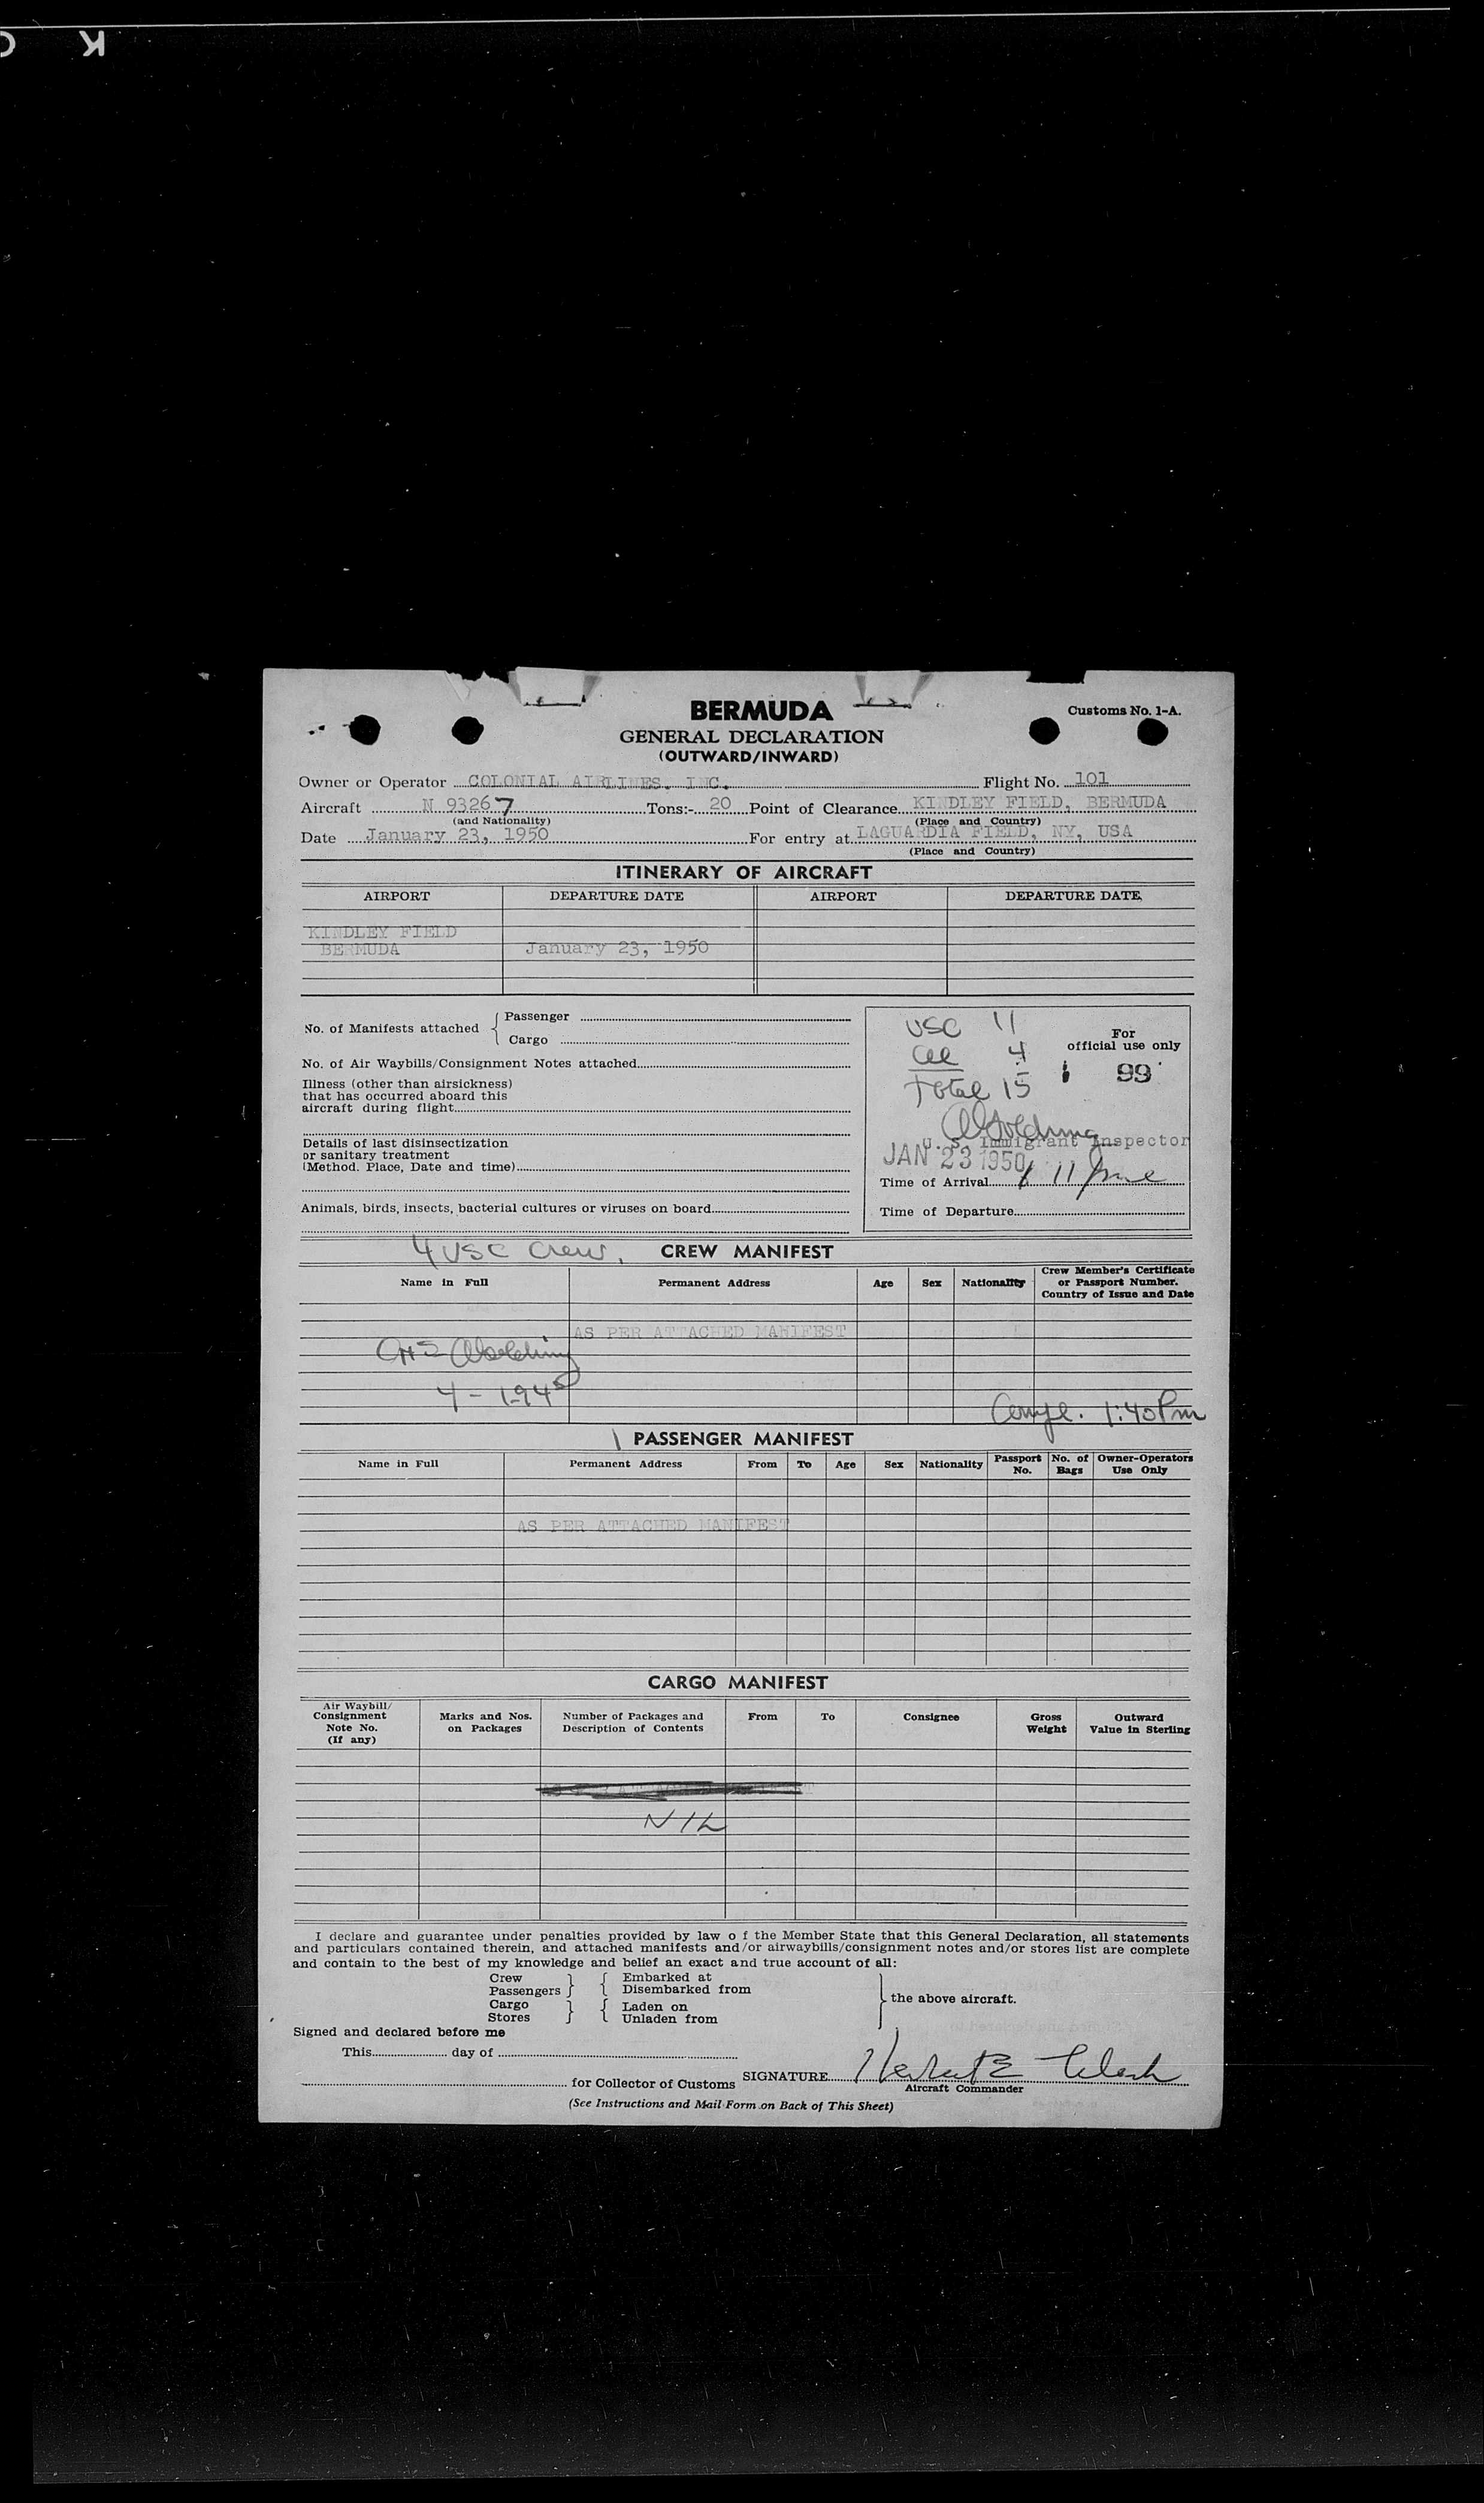 BERMUDA
Customs No. 1-A.
GENERAL DECLARATION
(OUTWARD/INWARD)
Owner or Operator COLONIAL AIRLINES, INC. Flight No. 101
Aircraft N 93267 Tons:- 20 Point of Clearance KINDLEY FIELD, BERMUDA
(and Nationality) (Place and Country)
Date January 23, 1950 For entry at LAGUARDIA FIELD, NY, USA
(Place and Country)
ITINERARY OF AIRCRAFT
AIRPORT DEPARTURE DATE AIRPORT DEPARTURE DATE
KINDLEY FIELD
BERMUDA January 23, 1950
No. of Manifests attached { Passenger
Cargo
No. of Air Waybills/Consignment Notes attached
Illness (other than airsickness)
that has occurred aboard this
aircraft during flight
Details of last disinsectization
or sanitary treatment
(Method. Place, Date and time)
Animals, birds, insects, bacterial cultures or viruses on board
USC 11
For
official use only
4
99
Total 15
U. S. Immigrant Inspector
JAN 23 1950
Time of Arrival
Time of Departure
4 USC Crew. CREW MANIFEST
Name in Full Permanent Address Age Sex Nationality Crew Member's Certificate
or Passport Number.
Country of Issue and Date
AS PER ATTACHED MANIFEST
1:40 Pm
PASSENGER MANIFEST
Name in Full Permanent Address From To Age Sex Nationality Passport No. No. of Bags Owner-Operators Use Only
AS PER ATTACHED MANIFEST
CARGO MANIFEST
Air Waybill/ Consignment Note No. (If any) Marks and Nos. on Packages Number of Packages and Description of Contents From To Consignee Gross Weight Outward Value in Sterling
NIL
I declare and guarantee under penalties provided by law o f the Member State that this General Declaration, all statements
and particulars contained therein, and attached manifests and/or airwaybills/consignment notes and/or stores list are complete
and contain to the best of my knowledge and belief an exact and true account of all:
Crew } { Embarked at
Passengers } { Disembarked from
Cargo } { Laden on } the above aircraft.
Stores } { Unladen from
Signed and declared before me
This day of
for Collector of Customs SIGNATURE
Aircraft Commander
(See Instructions and Mail Form on Back of This Sheet)